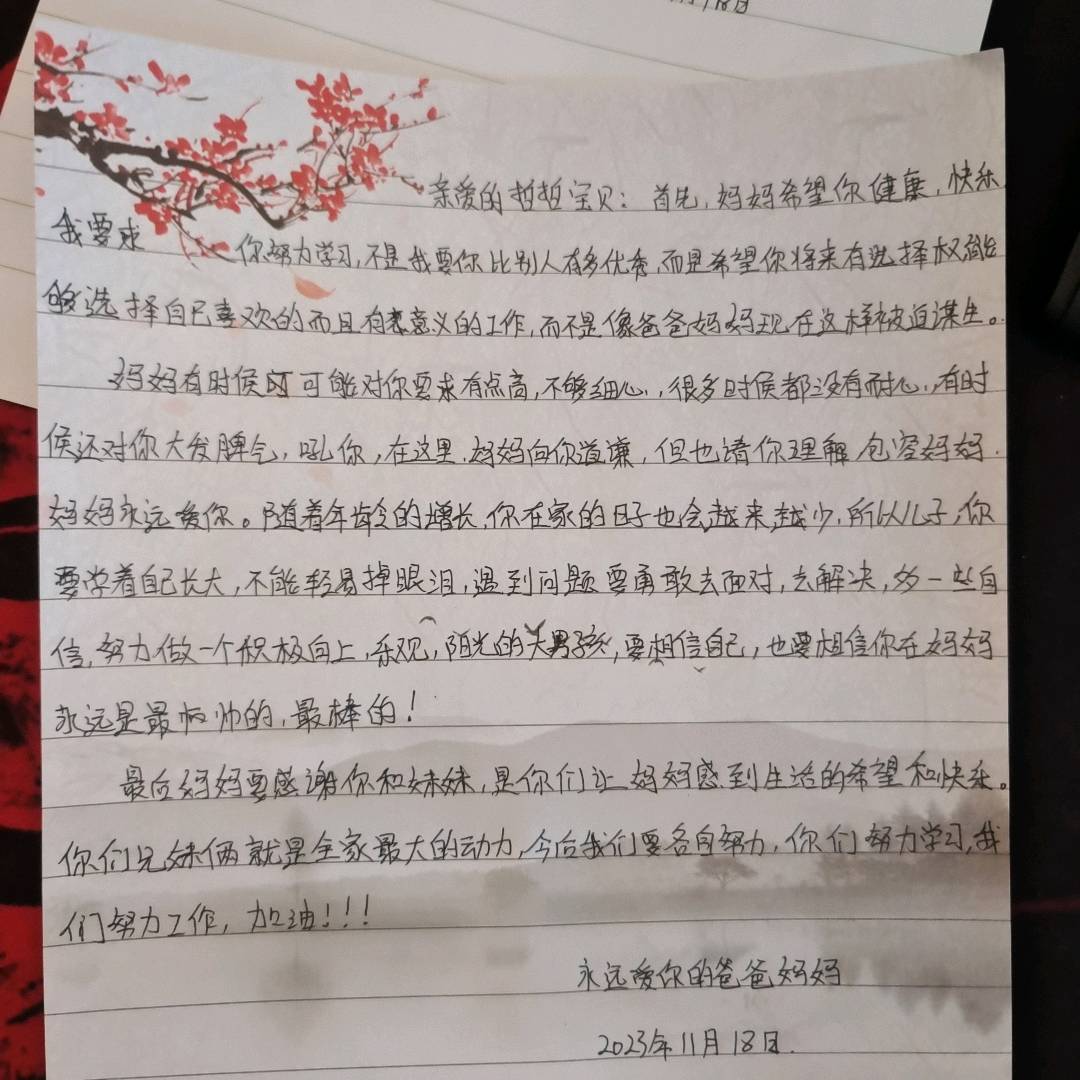 月18日
亲爱的哲哲宝贝：首先，妈妈希望你健康，快乐
我要求 你努力学习，不是我要你比别人有多优秀，而是希望你将来有选择权，能
够选择自己喜欢的而且有意义的工作，而不是像爸爸妈妈现在这样被迫谋生。
妈妈有时候可能对你要求有点高，不够细心，很多时候都没有耐心，有时
候还对你大发脾气，吼你，在这里，妈妈向你道歉，但也请你理解包容妈妈.
妈妈永远爱你。随着年龄的增长，你在家的日子也会越来越少，所以儿子，你
要学着自己长大，不能轻易掉眼泪，遇到问题要勇敢去面对，去解决，多一些自
信，努力做一个积极向上，乐观，阳光的大男孩，要相信自己，也要相信你在妈妈
永远是最帅的，最棒的！
最后妈妈要感谢你和妹妹，是你们让妈妈感到生活的希望和快乐。
你们兄妹俩就是全家最大的动力，今后我们要各自努力，你们努力学习，我
们努力工作，加油！！！
永远爱你的爸爸妈妈
2023年11月18日.